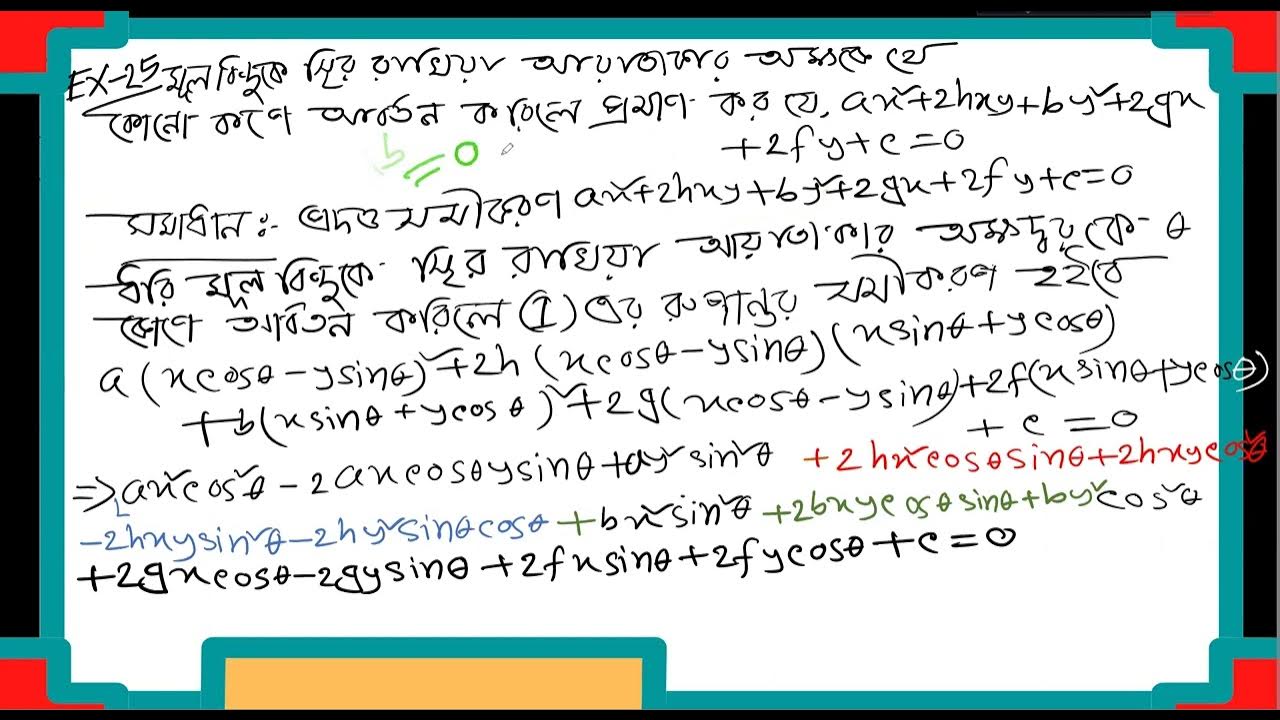 EX-25 মূল বিন্দুকে স্থির রাখিয়া আয়তাকার অক্ষকে যে
কোনো কোণে আবর্তন করিলে প্রমাণ কর যে, ax²+2hxy+by²+2gx
+2fy+c=0
b = 0
সমাধান:- প্রদত্ত সমীকরণ ax²+2hxy+by²+2gx+2fy+c=0
ধরি মূল বিন্দুকে স্থির রাখিয়া আয়তাকার অক্ষদ্বয়কে θ
কোণে আবর্তন করিলে (1) এর রুপান্তর সমীকরণ হইবে
a(xcosθ-ysinθ)²+2h(xcosθ-ysinθ)(xsinθ+ycosθ)
+b(xsinθ+ycosθ)²+2g(xcosθ-ysinθ)+2f(xsinθ+ycosθ)
+c=0
⇒ax²cos²θ-2axcosθysinθ+ay²sin²θ+2hx²cosθsinθ+2hxycos²θ
-2hxysin²θ-2hy²sinθcosθ+bx²sin²θ+2bxycosθsinθ+by²cos²θ
+2gxcosθ-2gysinθ+2fxsinθ+2fycosθ+c=0